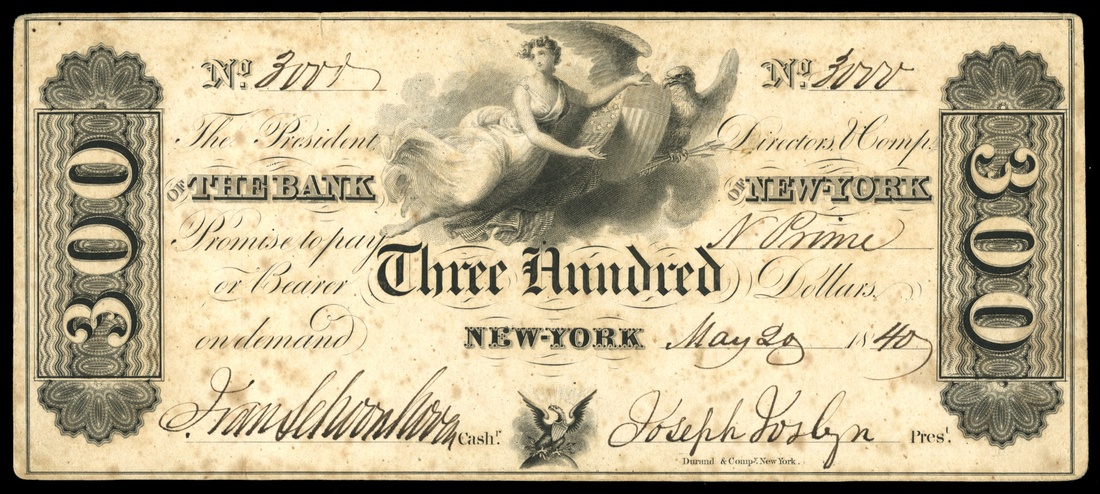 No. 3000 No. 3000
The President, Directors, & Comp.
OF THE BANK OF NEW-YORK
Promise to pay N Prime
or Bearer Three Hundred Dollars,
on demand NEW-YORK May 20 1840
Cashr. Joseph Joslyn Prest.
Durand & Compy. New York.
300
300